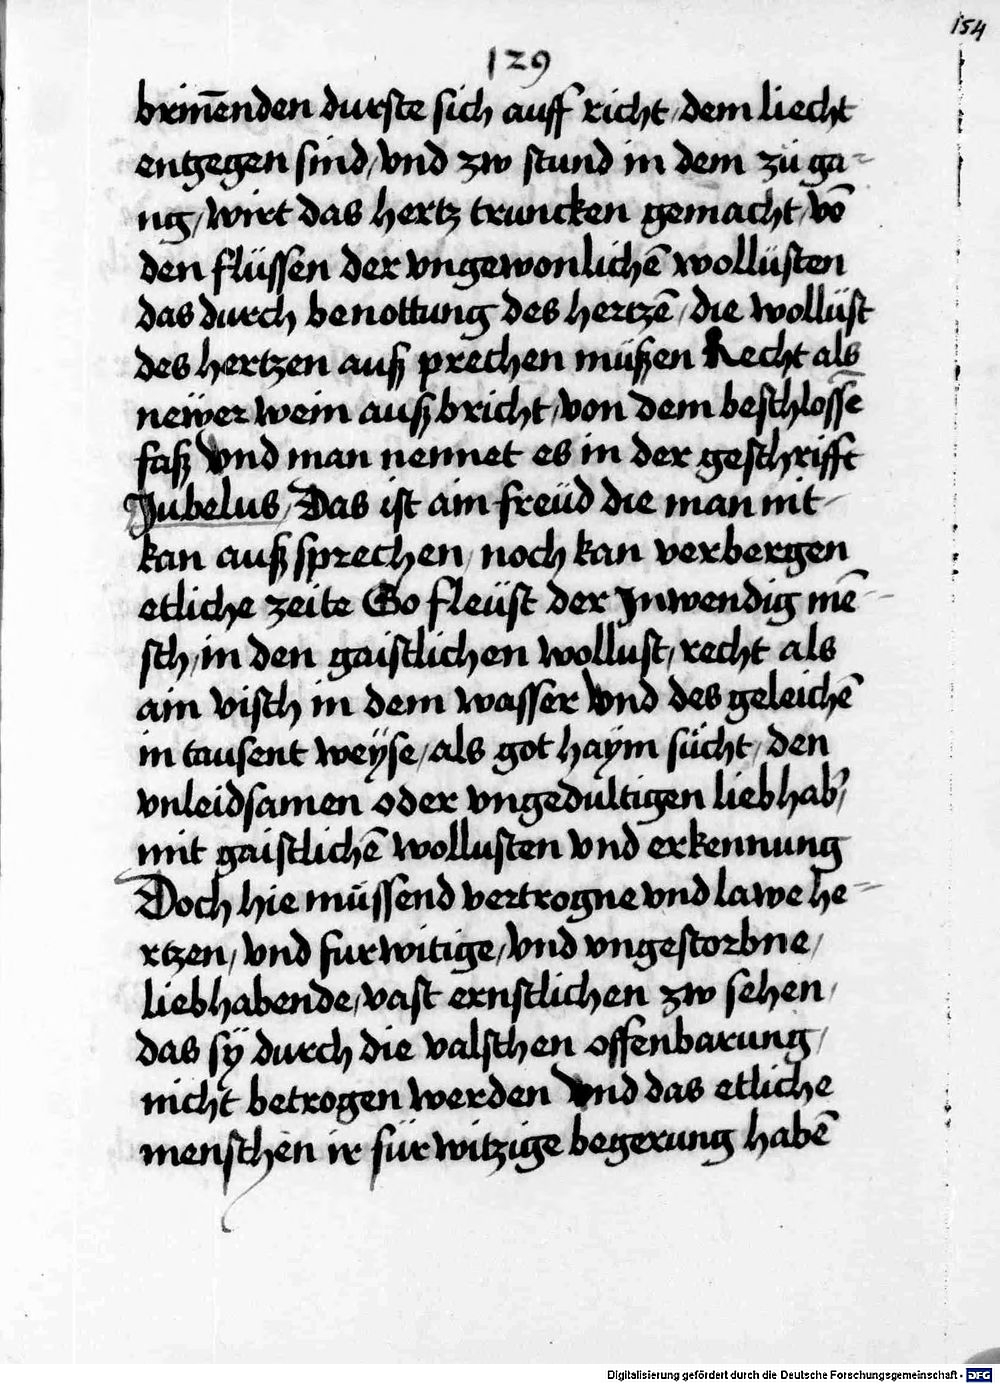 154
129
brinēnden durste sich auff richt / dem liecht
entgegen sind / vnd zw stund in dem zů ga=
ng / wirt das hertz truncken gemacht / vō
den flüssen der vngewonlichē wollüsten
das durch benottung des hertzē / die wollüst
des hertzen auß prechen müßen Recht als
neẅer wein auß bricht / von dem beschlossē
faß Vnd man nennet es in der geschrifft
Jubelus / Das ist ain freüd die man nit
kan auß sprechen / noch kan verbergen
etliche zeite So fleüst der Jnwendig mē=
sch / in den gaistlichen wollust / recht als
ain visch in dem wasser Vnd des geleichē
in tausent weÿse / als got haÿm sůcht / den
vnleidsamen oder vngedultigen liebhab'
mit gaistlichē wollusten vnd erkennung
Doch hie müssend vertrogne vnd lawe he=
rtzen / vnd furwitige / vnd vngestorbne /
liebhabende / vast ernstlichen zw sehen /
das sÿ durch die valschen offenbarung /
nicht betrogen werden Vnd das etliche
menschen ir für witzige begerung habē
Digitalisierung gefördert durch die Deutsche Forschungsgemeinschaft - DFG